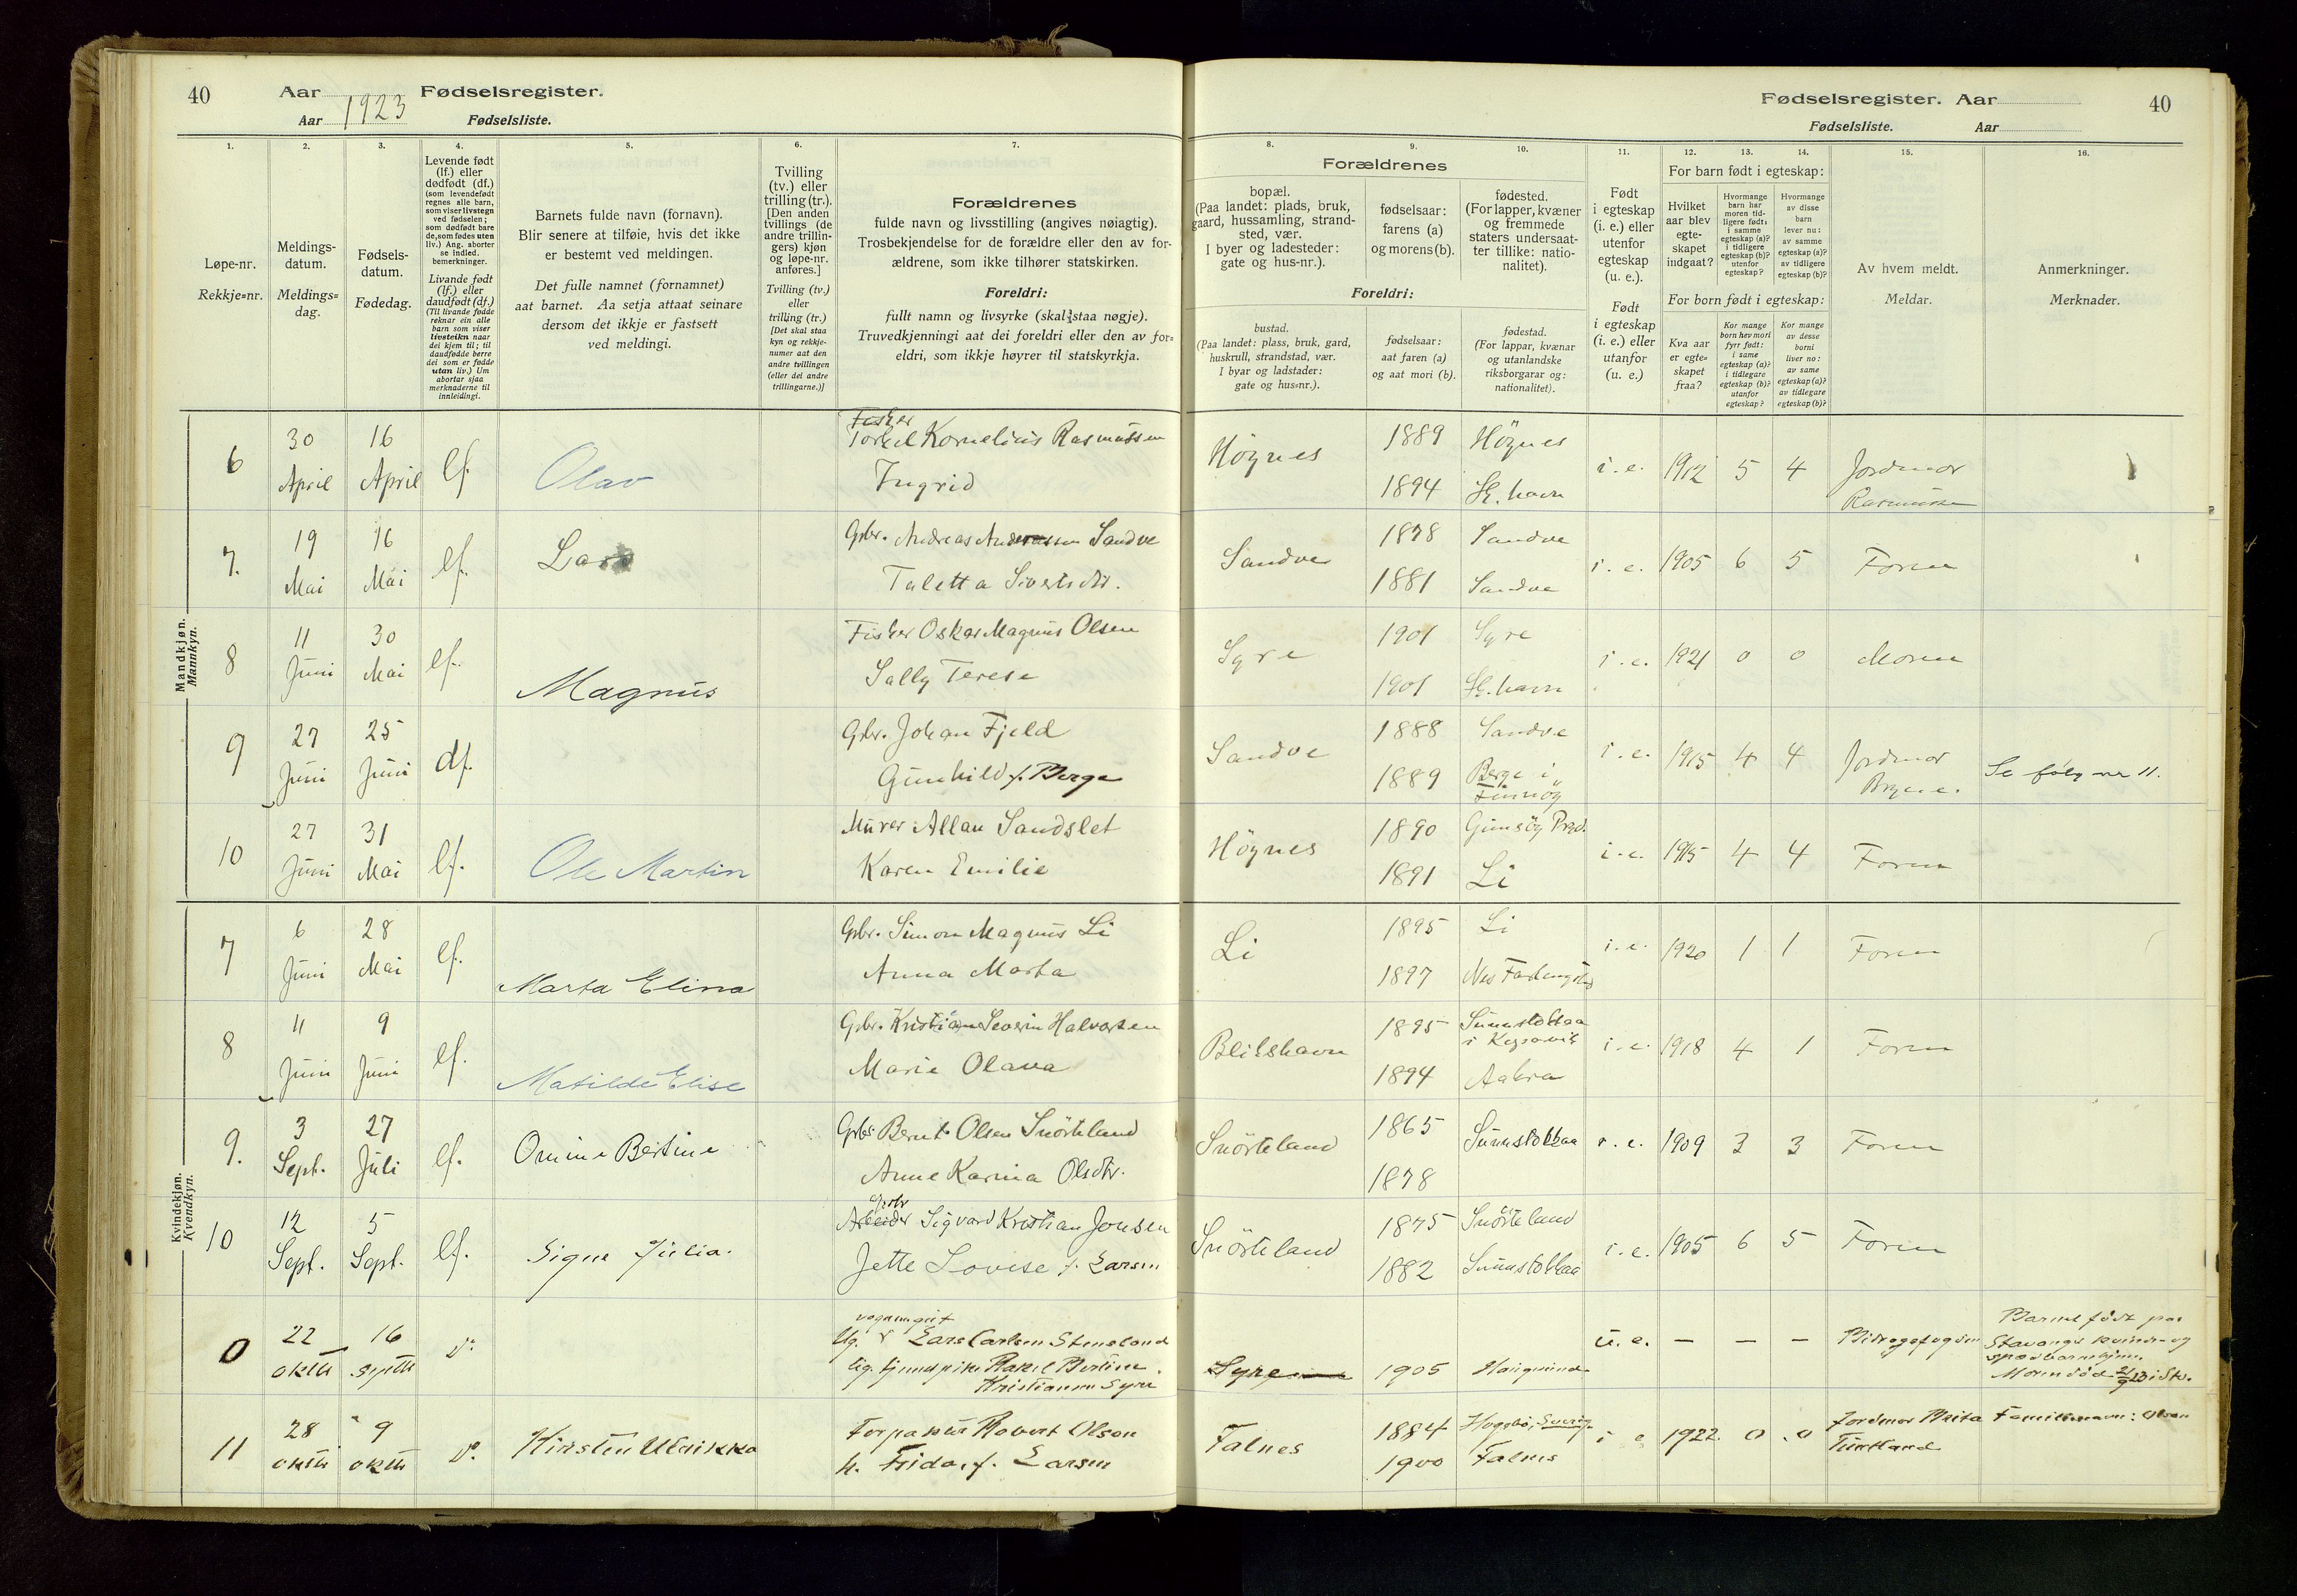 40 Aar 1923 Fødselsregister.
Aar Fødselsliste.
Fødselsregister. Aar 40
Fødselsliste. Aar
1. 2. 3. 4. 5. 6. 7. 8. 9. 10. 11. 12. 13. 14. 15. 16.
Løpe-nr.
Rekkje=nr.
Meldings-
datum.
Meldings=
dag.
Fødsels-
datum.
Fødedag.
Levende født
(lf.) eller
dødfødt (df.)
(som levendefødt
regnes alle barn,
som viser livstegn
ved fødselen;
som dødfødt bare
de, som fødes uten
liv.) Ang. aborter
se indled.
bemerkninger.
Livande født
(lf.) eller
daudfødt (df.)
(Til livande fødde
reknar ein alle
barn som viser
livsteikn naar
dei kjem til; til
daudfødde berre
dei som er fødde
utan liv.) Um
abortar sjaa
merknaderne til
innleidingi.
Barnets fulde navn (fornavn).
Blir senere at tilføie, hvis det ikke
er bestemt ved meldingen.
Det fulle namnet (fornamnet)
aat barnet. Aa setja attaat seinare
dersom det ikkje er fastsett
ved meldingi.
Tvilling
(tv.) eller
trilling (tr.).
[Den anden
tvillings (de
andre trillin-
gers) kjøn
og løpe-nr.
anføres.]
Tvilling (tv.)
eller
trilling (tr.)
[Det skal staa
kyn og rekkje-
numer aat den
andre tvillingen
(eller dei andre
trillingarne.)]
Forældrenes
fulde navn og livsstilling (angives nøiagtig).
Trosbekjendelse for de forældre eller den av for-
ældrene, som ikke tilhører statskirken.
Foreldri:
fullt namn og livsyrke (skal staa nøgje).
Truvedkjenningi aat dei foreldri eller den av for=
eldri, som ikkje høyrer til statskyrkja.
Forældrenes
bopæl.
(Paa landet: plads, bruk,
gaard, hussamling, strand-
sted, vær.
I byer og ladesteder:
gate og hus-nr.).
fødselsaar:
farens (a)
og morens (b).
fødested.
(For lapper, kvæner
og fremmede
staters undersaat-
ter tillike: natio-
nalitet).
Foreldri:
bustad.
(Paa landet: plass, bruk, gard,
huskrull, strandstad, vær.
I byar og ladstader:
gate og hus=nr.).
fødselsaar:
aat faren (a)
og aat mori (b).
fødestad.
(For lappar, kvænar
og utanlandske
riksborgarar og:
nationalitet).
Født
i egteskap
(i. e.) eller
utenfor
egteskap
(u. e.).
Født
i egteskap
(i. e.) eller
utanfor
(u. e.)
For barn født i egteskap:
Hvilket
aar blev
egte-
skapet
indgaat?
Hvormange
barn har
moren tid-
ligere født:
i samme
egteskap (a)?
i tidligere
egteskap (b)?
utenfor
egteskap?
Hvormange
av disse
barn
lever nu:
av samme
egteskap (a)?
av tidligere
egteskap (b)?
For born født i egteskap:
Kva aar
er egte=
skapet
fraa?
Kor mange
born hev mori
fyrr født:
i same
egteskap (a)?
i tidlegare
egteskap (b)?
utanfor
egteskap?
Kor mange
av desse
borni
liver no:
av same
egteskap (a)?
av tidlegare
egteskap (b)?
Av hvem meldt.
Meldar.
Anmerkninger.
Merknader.
Mandkjøn.
Mannkyn.
6 30 April 16 April lf. Olav
Fisker
Torkel Kornelius Rasmussen
Ingrid
Höynes 1889 Höynes
1894 Sk. havn
i. e. 1912 5 4 Jordmor
Rasmussen
7. 19 Mai 16 Mai lf. Lars
Gbr. Andreas Andreassen Sandve
Taletta Sivertsdtr.
Sandve 1878 Sandve
1881 Sandve
i. e. 1905 6 5 Faren
8 11 Juni 30 Mai lf. Magnus
Fisker Oskar Magnus Olsen
Sally Terese
Syre 1901 Syre
1901 Sk. havn
i. e. 1921 0 0 Moren
9 27 Juni 25 Juni df.
Gbr. Johan Fjeld
Gunhild f. Berge
Sandve 1888 Sandve
1889 Berge i
Finnöy
i. e. 1915 4 4 Jordmor
Brynne. Se følg nr 11.
10 27 Juni 31 Mai lf. Ole Martin
Murer Allan Sandslet
Karen Emilie
Höynes 1890 Gimsöy Prgd.
1891 Li
i. e. 1915 4 4 Faren
Kvindekjøn.
Kvendkyn.
7 6 Juni 28 Mai lf. Marta Elina
Gbr. Simon Magnus Li
Anna Marta
Li 1895 Li
1897 Nes
i. e. 1920 1 1 Faren
8 11 Juni 9 Juni lf. Matilde Elise
Gbr. Kristian Severin Halvorsen
Marie Olava
Blikshavn 1895 Sunnstokkaa
i Kopervik
1894 Aakra
i. e. 1918 4 1 Faren
9. 3 Sept. 27 Juli lf. Omine Bertine
Gbr. Bernt Olsen Snörteland
Anne Karina Olsdtr.
Snörteland 1865 Sunnstokkaa
1878
i. e. 1909 3 3 Faren
10 12 Sept. 5 Sept. lf. Signe Julia.
Gbr
Arbeider Sigvard Kristian Jonsen
Jette Lovise f. Larsen
Snörteland 1875 Snörteland
1882 Sunnstokkaa
i. e. 1905 6 5 Faren
0 22 oktbr 16 septbr do
vogngut
Ug. Lars Carlsen Stensland
Ug. tjenestpike Rakel Bertine
Kristiansen Syre
Syre 1905 Haugesund
u. e. — — — Bidragsfogden
Barnet født paa
Stavanger kvinde- og
spædbarnhjem.
Moren död 2/9 23 i Sta.
11 28 oktbr 9 oktbr do. Kirsten Ulrikka
Torpakur Robert Olson
h. Frida, f. Larsen
Falnes 1884 Hogsbo, Sverig.
1900 Falnes
i e 1922. 0 0 Jordmor Brita
Tuntland
Familienavn: Olson